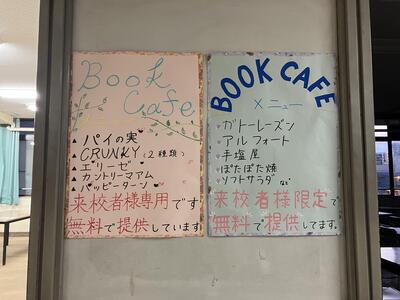 Book
Cafe
メニュー
▲ パイの実
▲ CRUNKY (2種類)
▲ エリーゼ
▲ カントリーマアム
▲ パッピーターン
来校者様専用です
無料で提供しています。
BOOK CAFE
メニュー
ガトーレーズン
アルフォート
手塩屋
ぽたぽた焼
ソフトサラダ など
来校者様限定で
無料で提供してます。